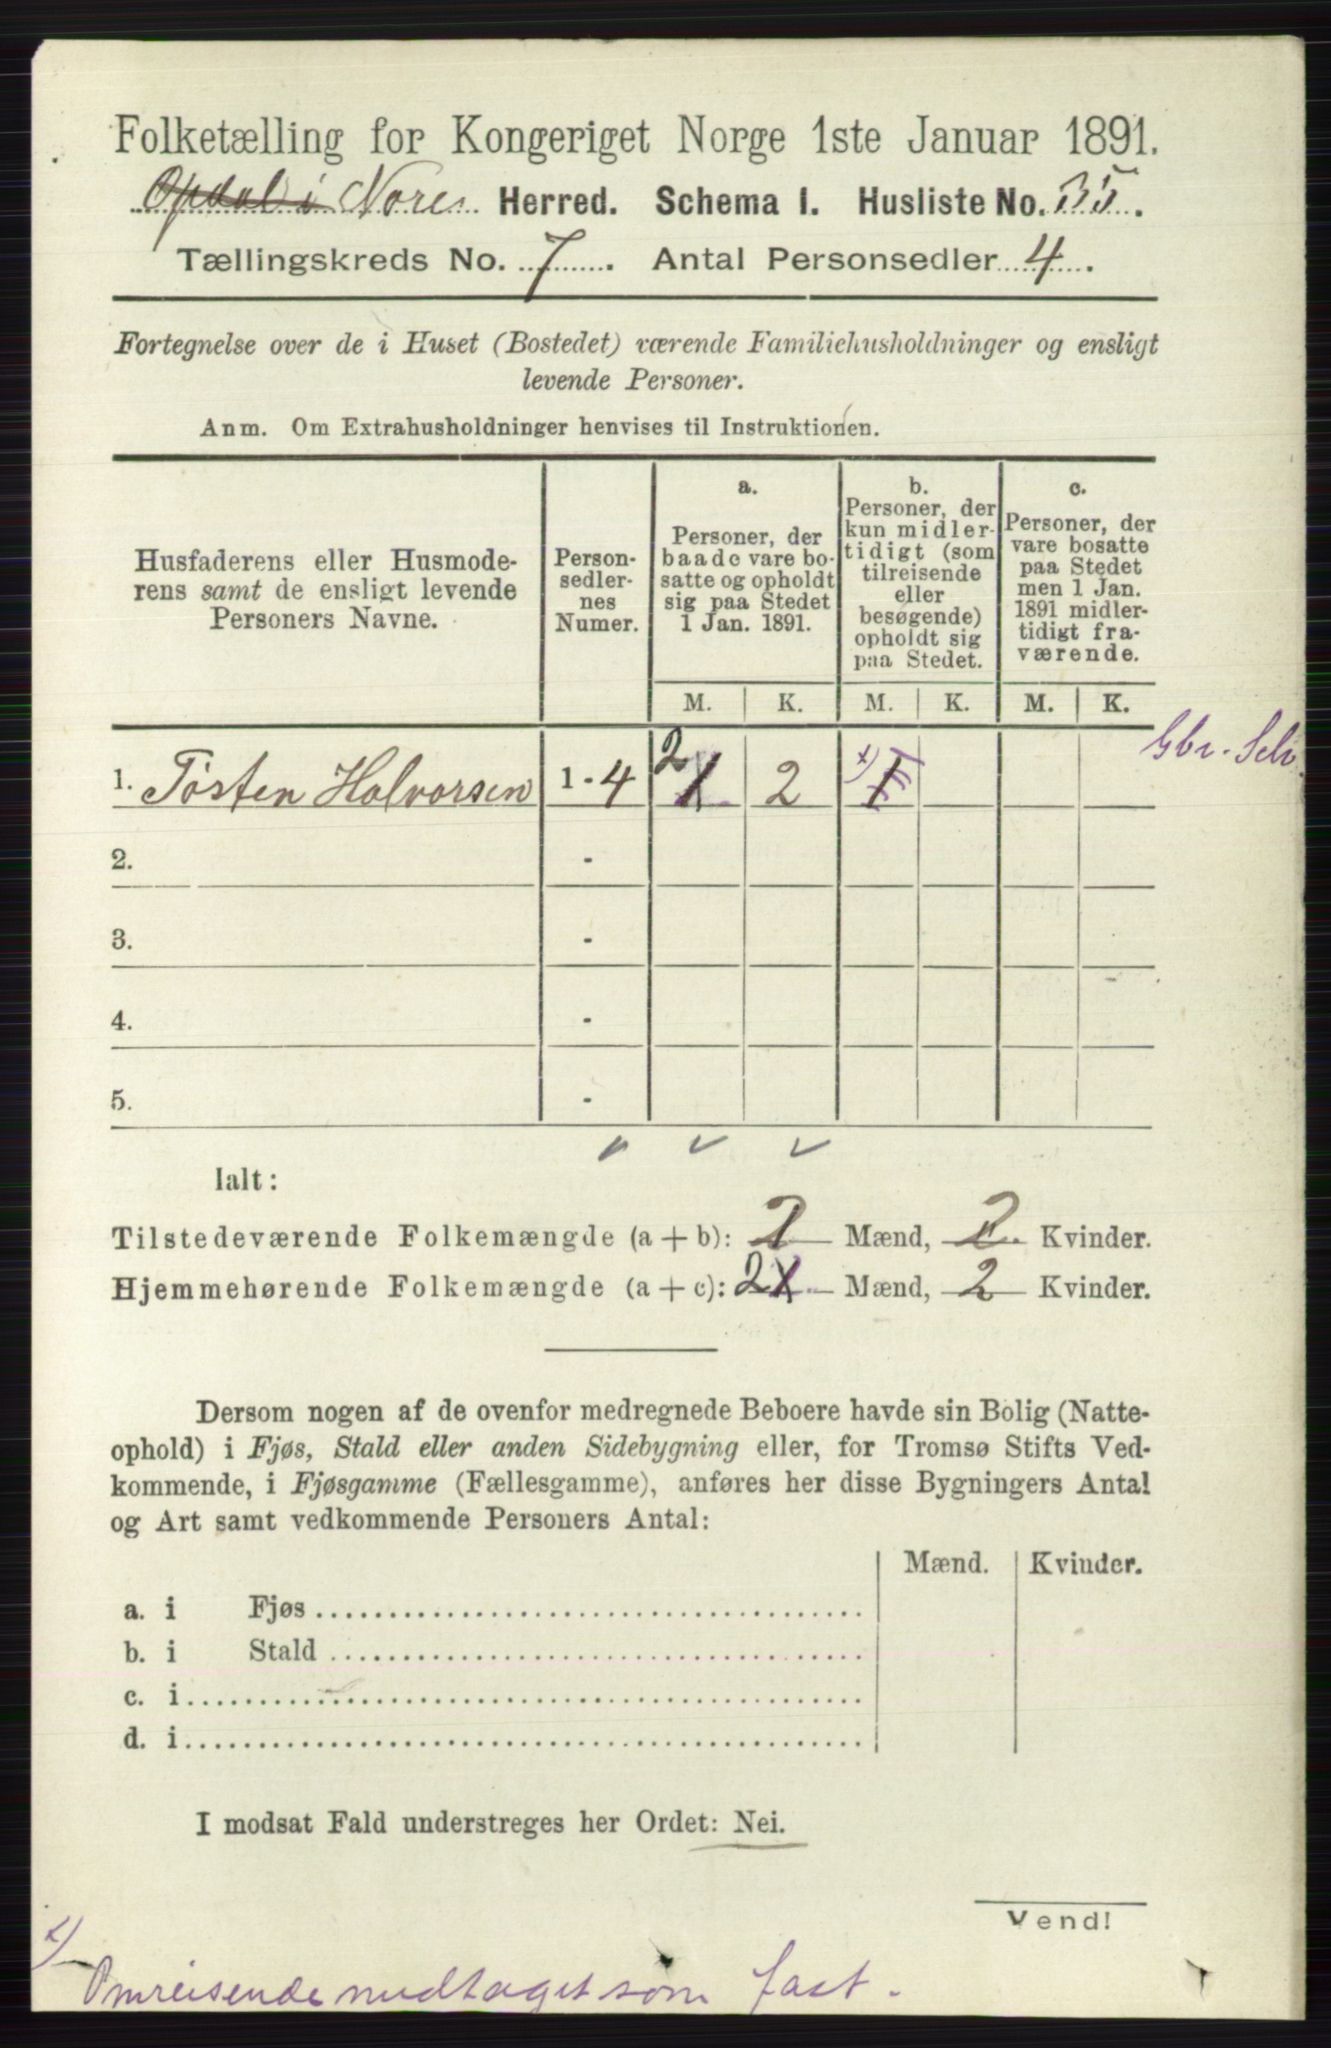 Folketælling for Kongeriget Norge 1ste Januar 1891.
Opdal i Nores Herred. Schema I. Husliste No. 35.
Tællingskreds No. 7. Antal Personsedler 4.
Fortegnelse over de i Huset (Bostedet) værende Familiehusholdninger og ensligt
levende Personer.
Anm. Om Extrahusholdninger henvises til Instruktionen.
Husfaderens eller Husmode-
rens samt de ensligt levende
Personers Navne.
Person-
sedler-
nes
Numer.
a.
Personer, der
baade vare bo-
satte og opholdt
sig paa Stedet
1 Jan. 1891.
b.
Personer, der
kun midler-
tidigt (som
tilreisende
eller
besøgende)
opholdt sig
paa Stedet.
c.
Personer, der
vare bosatte
paa Stedet
men 1 Jan.
1891 midler-
tidigt fra-
værende.
M. K. M. K. M. K.
1. Tosten Halvorsen 1 - 4 2 1 2 x) 1 Gbr. Selv
2. -
3. -
4. -
5. -
Ialt:
Tilstedeværende Folkemængde (a + b): 2 Mænd, 2 Kvinder.
Hjemmehørende Folkemængde (a + c): 2 1 Mænd, 2 Kvinder.
Dersom nogen af de ovenfor medregnede Beboere havde sin Bolig (Natte-
ophold) i Fjøs, Stald eller anden Sidebygning eller, for Tromsø Stifts Ved-
kommende, i Fjøsgamme (Fællesgamme), anføres her disse Bygningers Antal
og Art samt vedkommende Personers Antal:
Mænd. Kvinder.
a. i Fjøs
b. i Stald
c. i
d. i
I modsat Fald understreges her Ordet: Nei.
Vend!
x) Omreisende medtaget som fast.